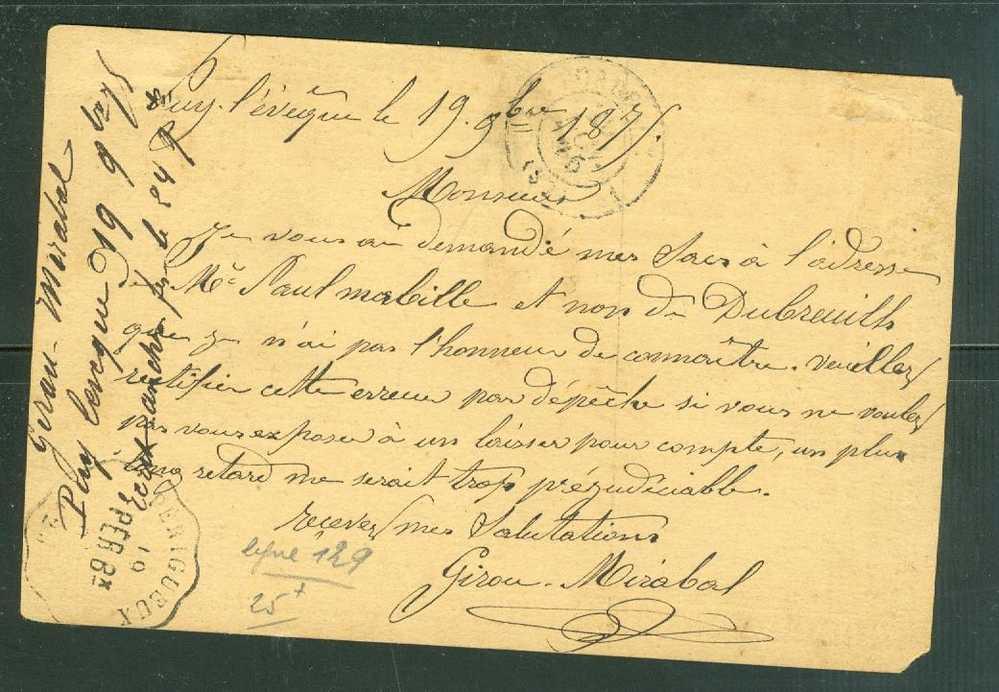 Puy-l'évêque le 19. 9bre 1875.
Monsieur
Je vous ai demandé mes sacs à l'adresse
de Mr Paul mabille et non de Dubreuilh
que je n'ai pas l'honneur de connaître. veuillez
rectifier cette erreur par dépêche si vous ne voulez
pas vous exposer à un laisser pour compte, un plus
long retard me serait trop préjudiciable.
recevez mes Salutations
Girou-Mirabal
Girou-Mirabal
Puy levesque 19 9bre 75
le 24 9bre
PERIGUEUX
19
PER.BX
ligne 129
25+